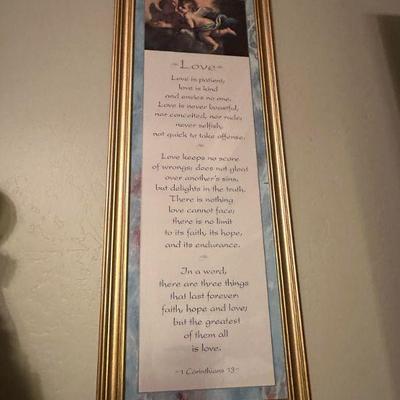 ~Love~
Love is patient;
love is kind
and envies no one.
Love is never boastful,
nor conceited, nor rude;
never selfish,
not quick to take offense.
Love keeps no score
of wrongs; does not gloat
over another's sins,
but delights in the truth.
There is nothing
love cannot face;
there is no limit
to its faith, its hope,
and its endurance.
In a word,
there are three things
that last forever:
faith, hope and love;
but the greatest
of them all
is love.
~1 Corinthians 13~